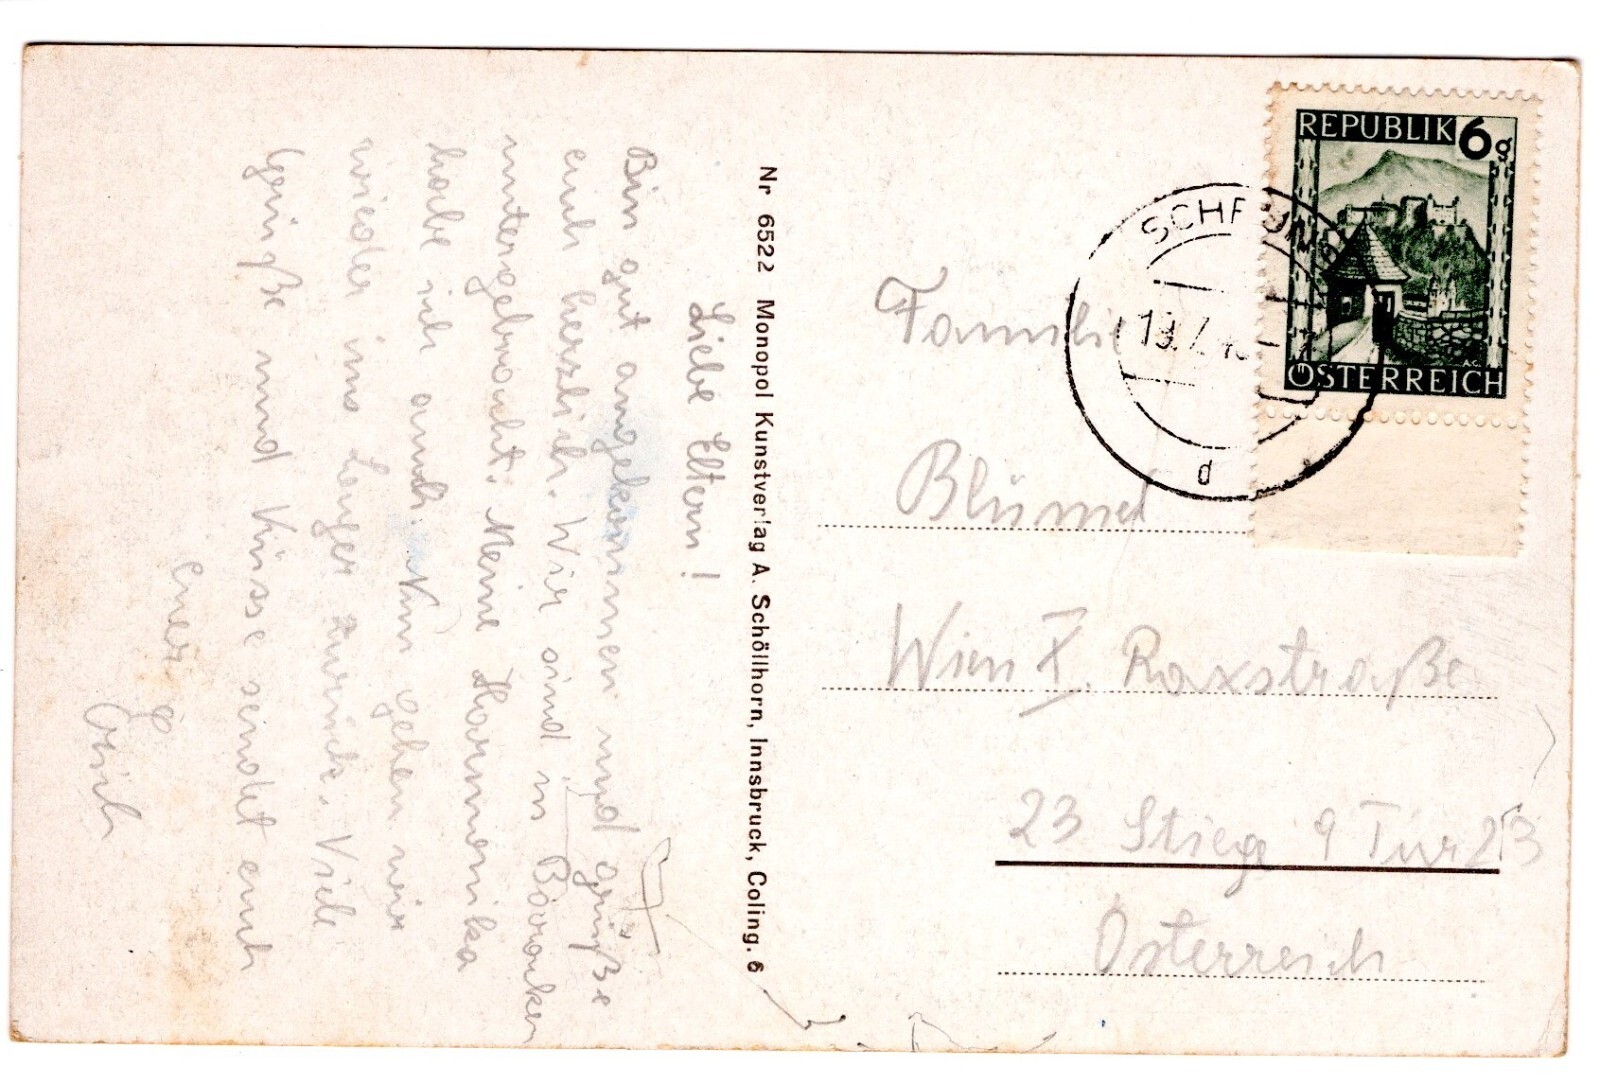 Liebe Eltern!
Bin gut angekommen und grüße
euch herzlich. Wir sind in Baracken
untergebracht. Meine Harmonika
habe ich auch. Nun gehen wir
wieder ins Lager zurück. Viele
Grüße und Küsse sendet euch
Euer
Erich
Nr 6522 Monopol Kunstverlag A. Schöllhorn, Innsbruck, Coling. 6
REPUBLIK 6g
ÖSTERREICH
SCHRUNS
19.7.
d
Familie
Blümel
Wien X. Raxstraße
23 Stiege 9 Tür 23
Österreich